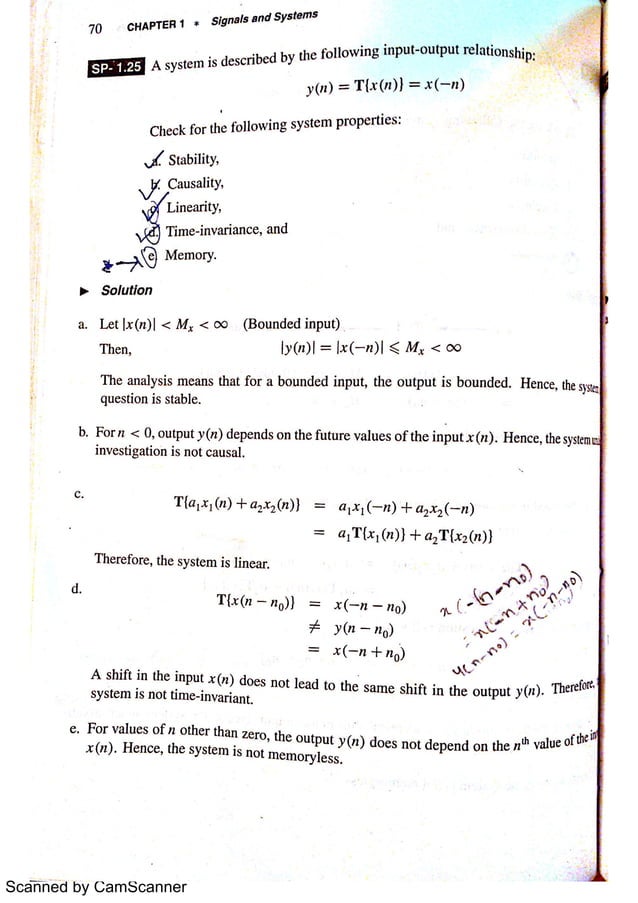 70 CHAPTER 1 * Signals and Systems
SP- 1.25 A system is described by the following input-output relationship:
y(n) = T{x(n)} = x(−n)
Check for the following system properties:
a. Stability,
b. Causality,
c. Linearity,
d. Time-invariance, and
e. Memory.
► Solution
a. Let |x(n)| < Mₓ < ∞ (Bounded input)
Then, |y(n)| = |x(−n)| ⩽ Mₓ < ∞
The analysis means that for a bounded input, the output is bounded. Hence, the
question is stable.
b. For n < 0, output y(n) depends on the future values of the input x(n). Hence, the system
investigation is not causal.
c. T{a₁x₁(n) + a₂x₂(n)} = a₁x₁(−n) + a₂x₂(−n)
= a₁T{x₁(n)} + a₂T{x₂(n)}
Therefore, the system is linear.
d. T{x(n − n₀)} = x(−n − n₀)
≠ y(n − n₀)
= x(−n + n₀)
x(-(n-n₀)
= x(-n+n₀)
y(n-n₀) = x(-n-n₀)
A shift in the input x(n) does not lead to the same shift in the output y(n). Therefore,
system is not time-invariant.
e. For values of n other than zero, the output y(n) does not depend on the nᵗʰ value of the
x(n). Hence, the system is not memoryless.
Scanned by CamScanner